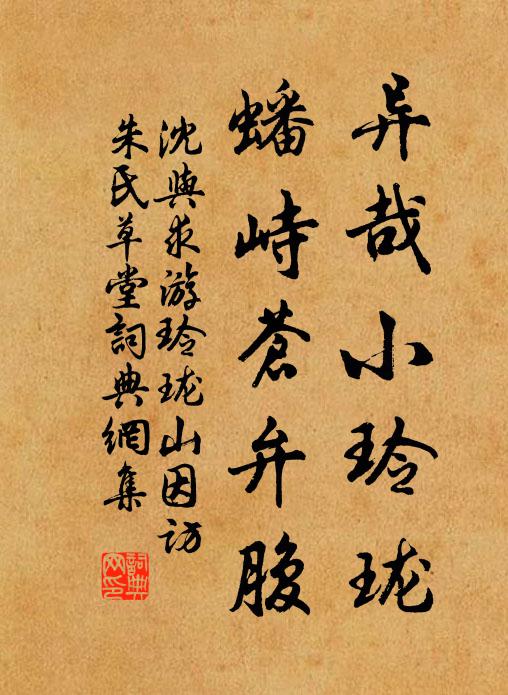 异哉小玲珑
蟠峙苍弁腹
沈與求游玲珑山因访
朱氏草堂詞典網集
詞典网印